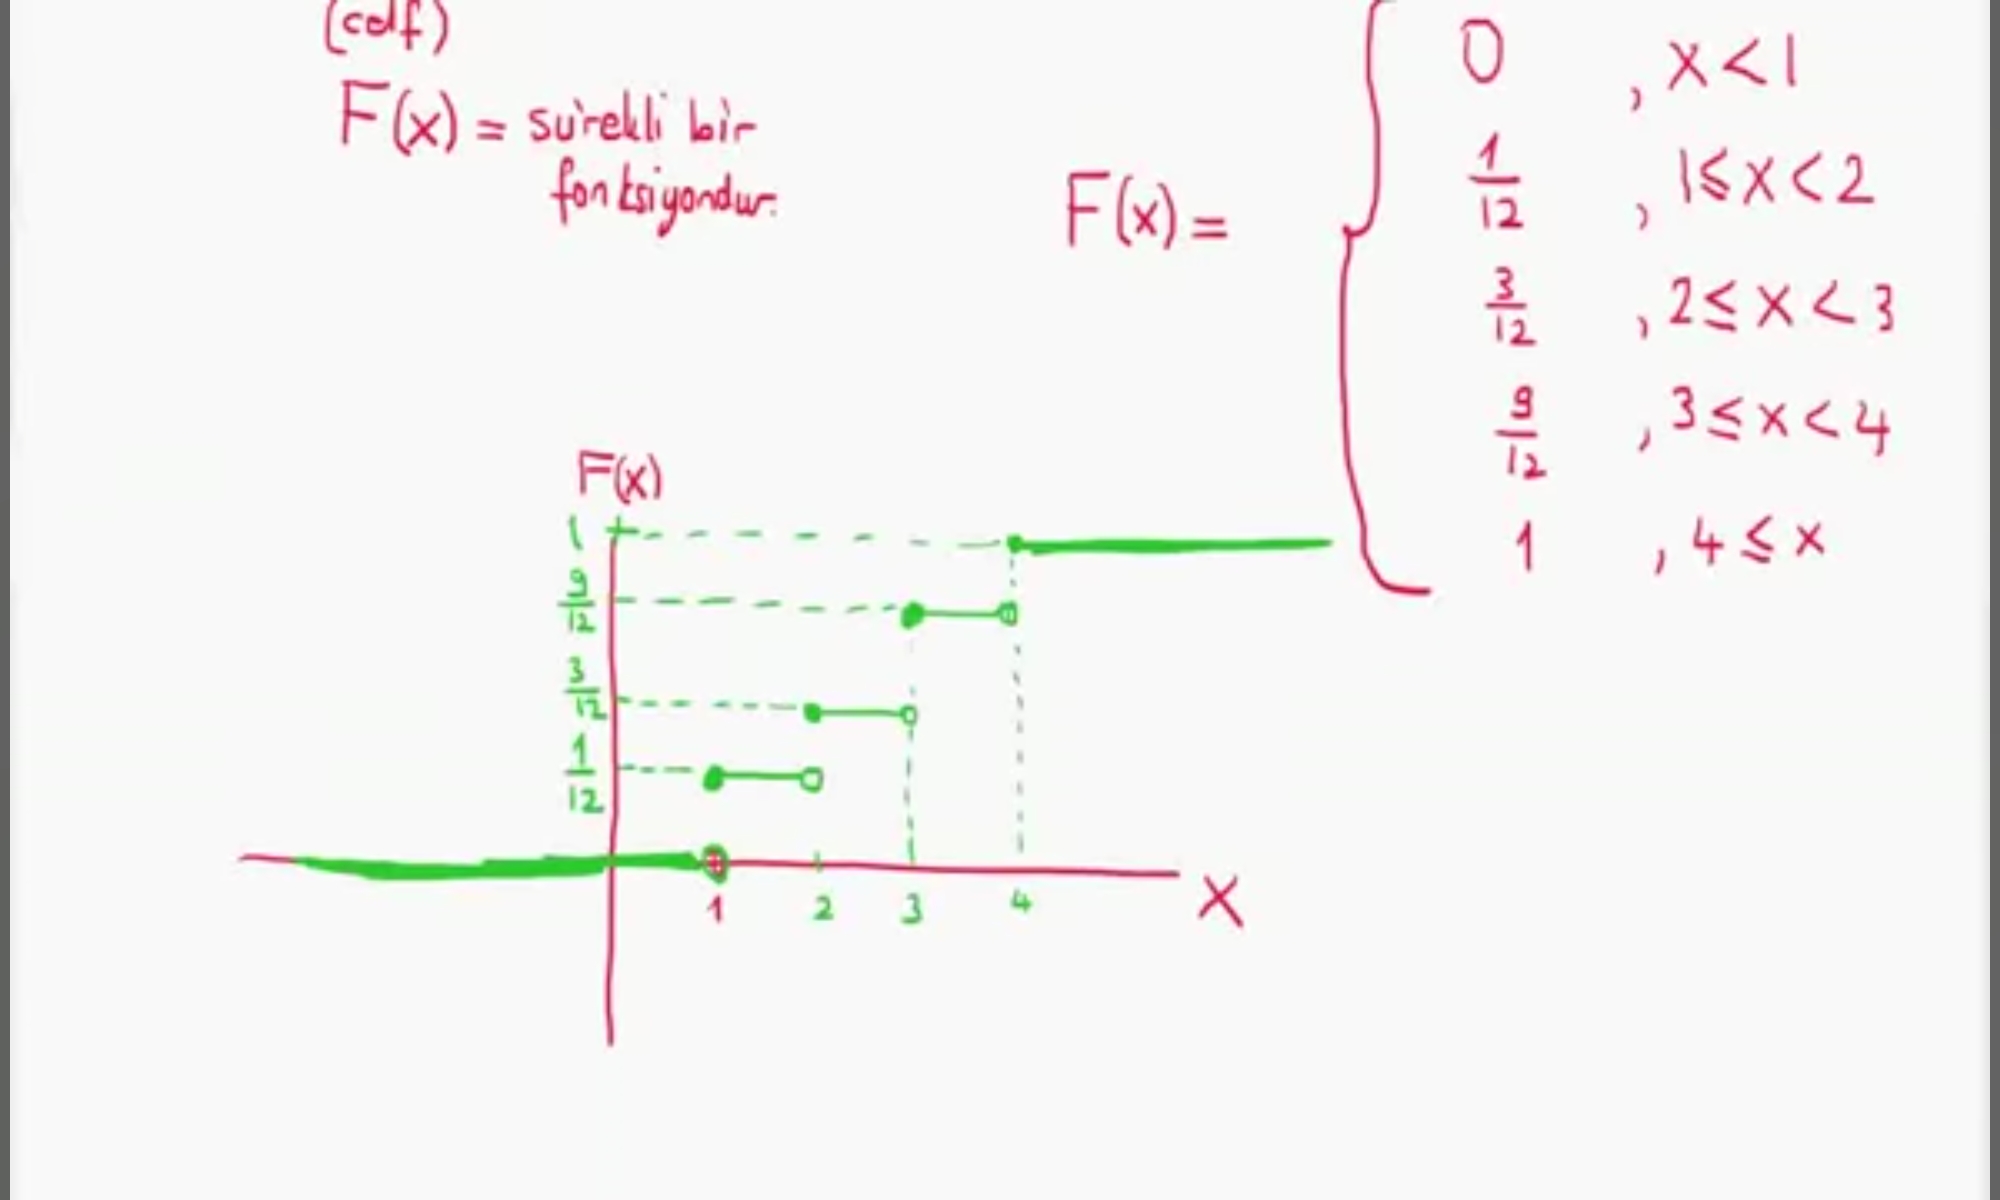 (cdf)
F(x) = sürekli bir
fonksiyondur.
F(x) =
0 , x < 1
1/12 , 1 ≤ x < 2
3/12 , 2 ≤ x < 3
9/12 , 3 ≤ x < 4
1 , 4 ≤ x
F(x)
1
9/12
3/12
1/12
1 2 3 4
X